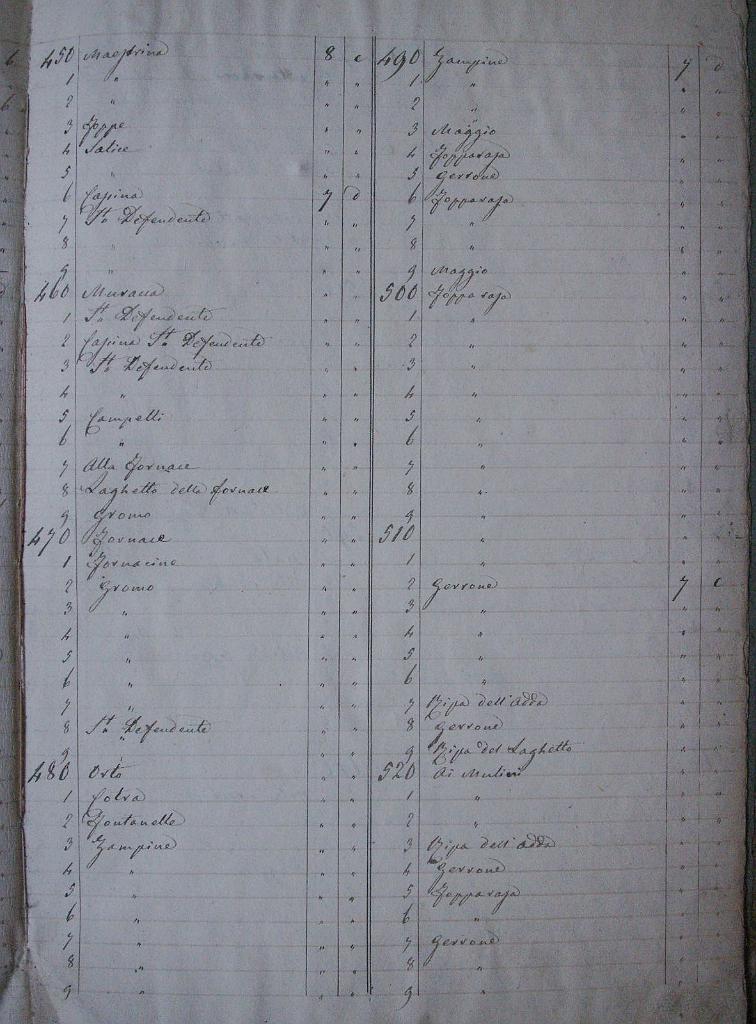 450 Maestrina 8 c
1 " " "
2 " " "
3 Zoppe " "
4 Salice " "
5 " " "
6 Casina 7 d
7 Sn Defendente " "
8 " " "
9 " " "
460 Murana " "
1 Sn Defendente " "
2 Casina Sn Defendente " "
3 Sn Defendente " "
4 " " "
5 Campetti " "
6 " " "
7 Alla Fornace " "
8 Laghetto della fornace " "
9 Gromo " "
470 Fornace " "
1 Fornacine " "
2 Gromo " "
3 " " "
4 " " "
5 " " "
6 " " "
7 " " "
8 Sn Defendente " "
9 " " "
480 Orto " "
1 " "
2 Fontanelle " "
3 Zampine " "
4 " " "
5 " " "
6 " " "
7 " " "
8 " " "
9 " " "
490 Zampine 7 d
1 " " "
2 " " "
3 Maggio " "
4 Zopparaja " "
5 Gerrone " "
6 Zopparaja " "
7 " " "
8 " " "
9 Maggio " "
500 Zopparaja " "
1 " " "
2 " " "
3 " " "
4 " " "
5 " " "
6 " " "
7 " " "
8 " " "
9 " " "
510 " " "
1 " " "
2 Gerrone 7 c
3 " " "
4 " " "
5 " " "
6 " " "
7 Ripa dell'Adda " "
8 Gerrone " "
9 Ripa del Laghetto " "
520 Ai Mulini " "
1 " " "
2 " " "
3 Ripa dell'Adda " "
4 Gerrone " "
5 Zopparaja " "
6 " " "
7 Gerrone " "
8 " " "
9 " " "